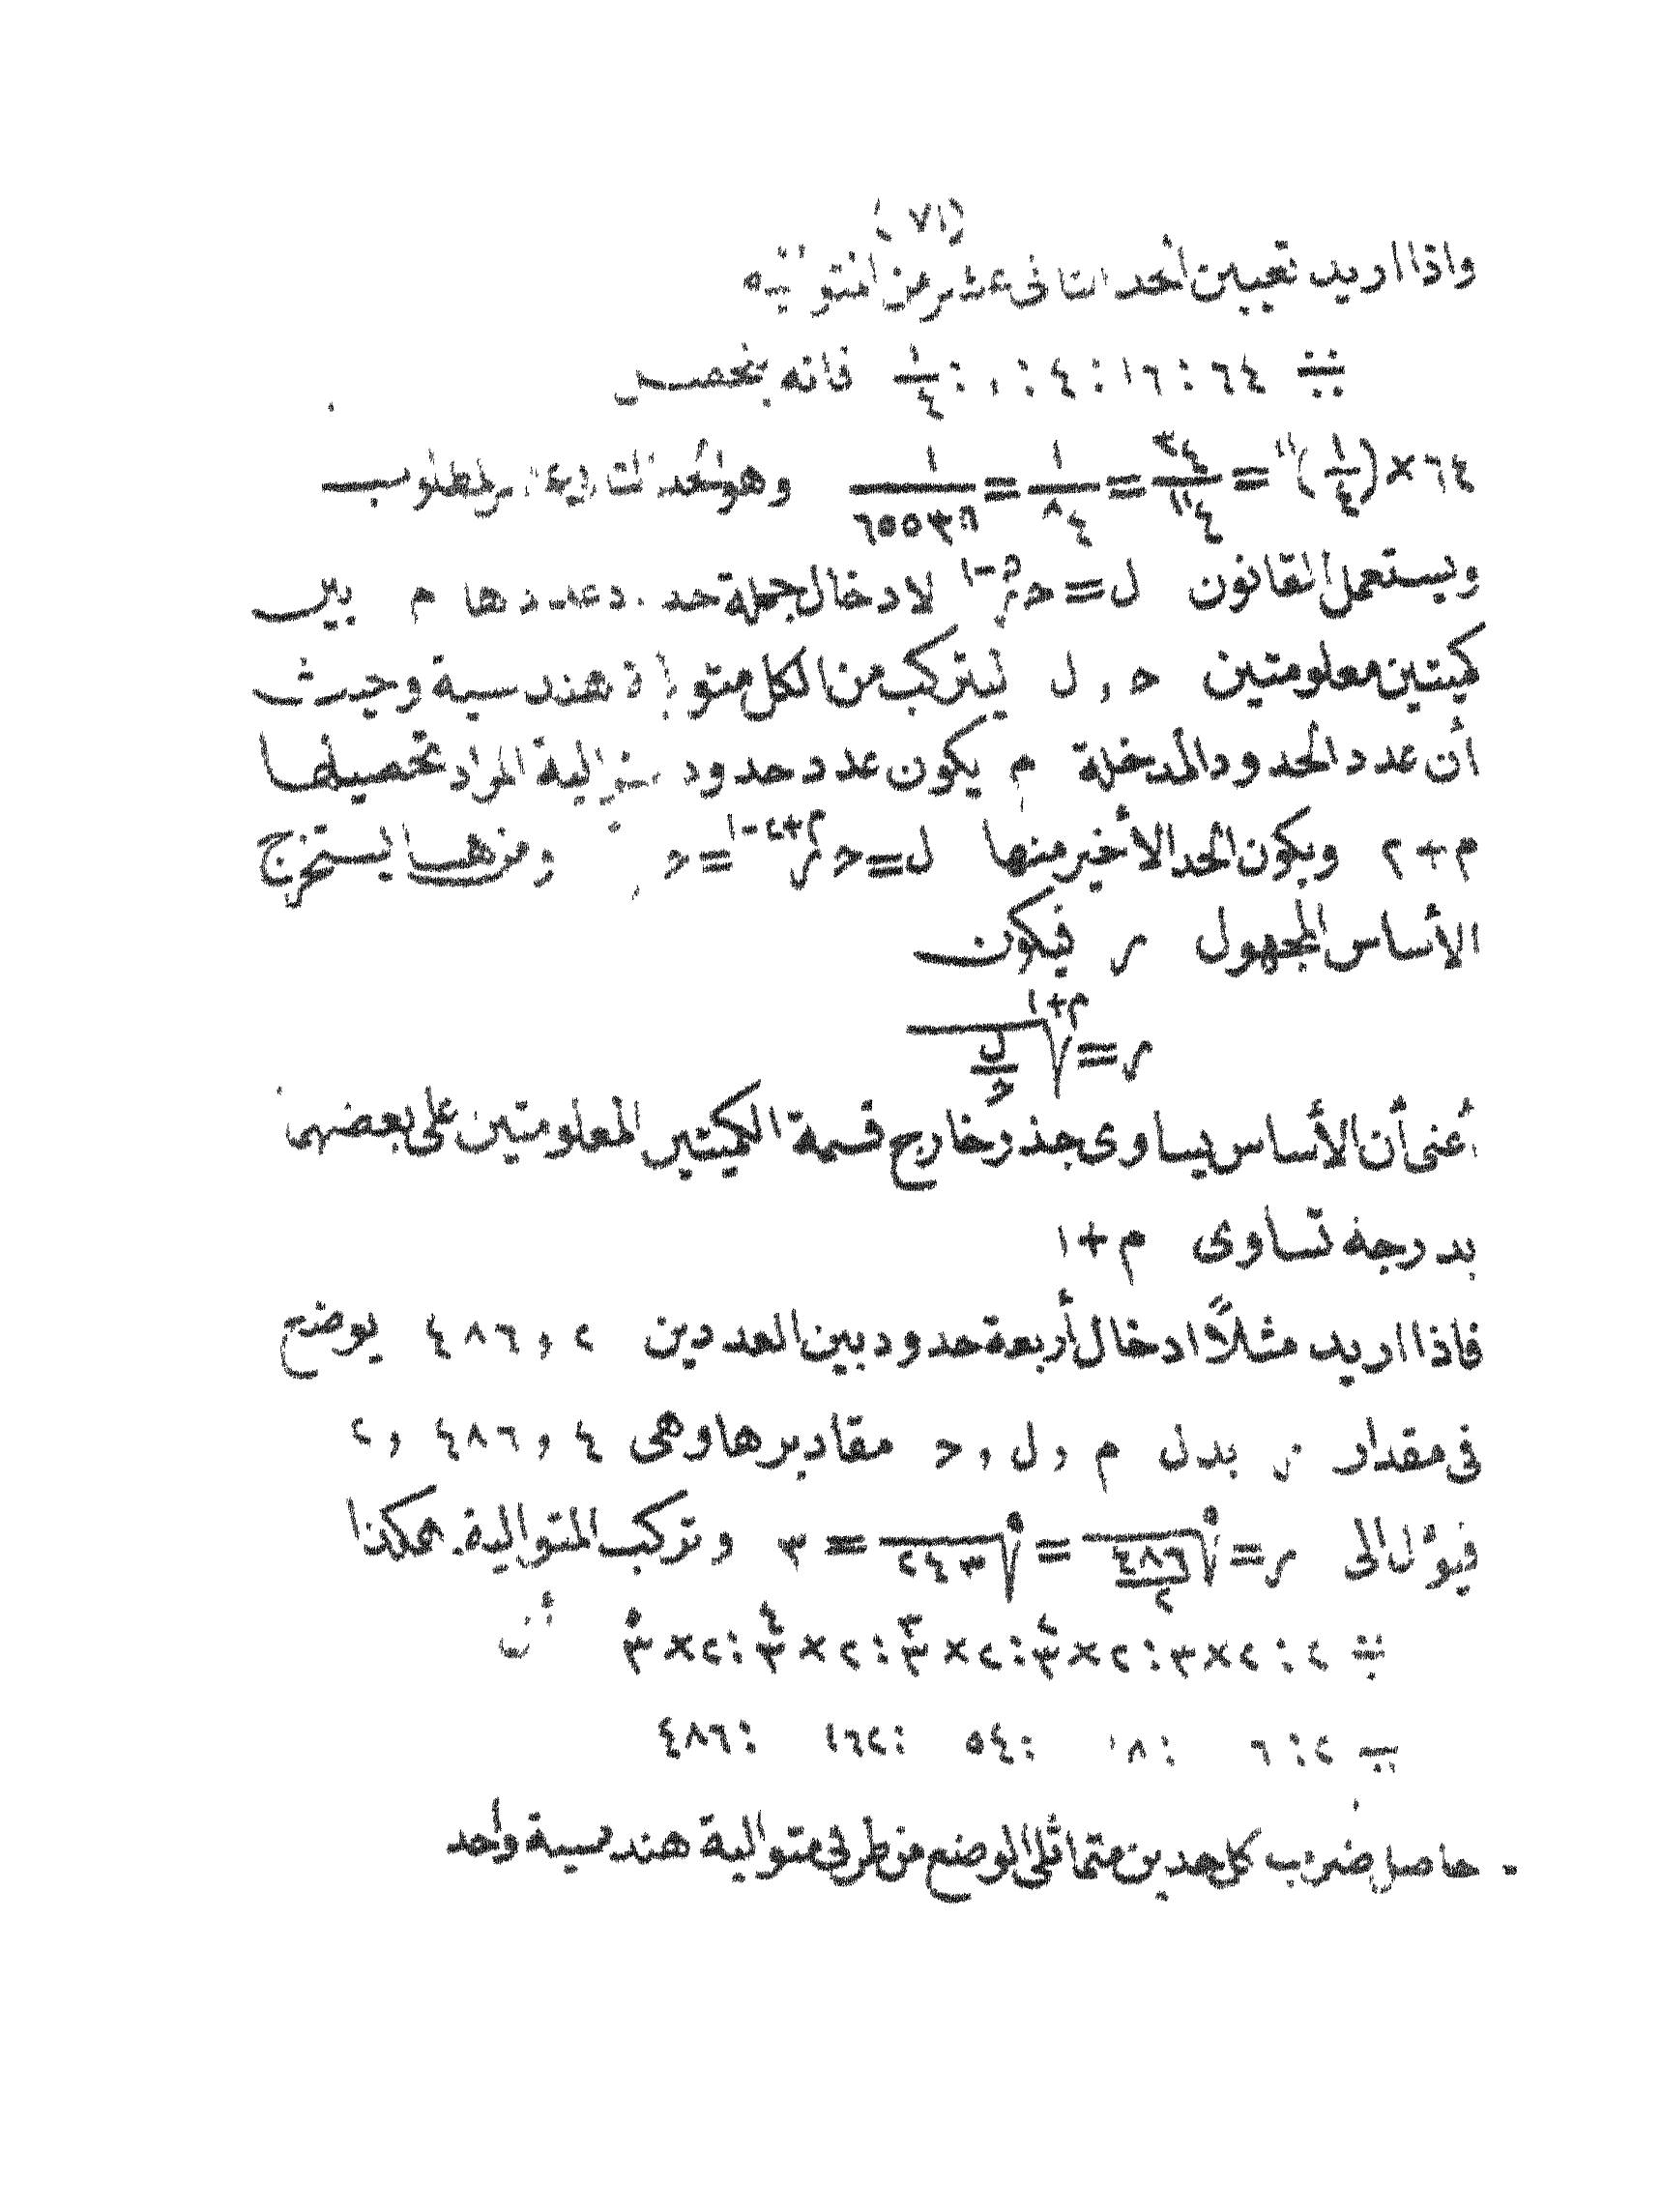 (٧١)
واذا اريد تعيين الحد الثانى عشر من المتوالية
∺ ٦٤ : ١٦ : ٤ : ١ : ١/٤ فانه يتحصل
٦٤×(١/٤)^١١ = ٤^٣/٤^١١ = ١/٤^٨ = ١/٦٥٥٣٦ وهو الحد المطلوب
ويستعمل القانون ل=حر^(ن-١) لادخال جملة حدود عددها م بين
كميتين معلومتين ح , ل ليتركب من الكل متوالية هندسية وحيث
أن عدد الحدود المدخلة م يكون عدد حدود المتوالية المراد تحصيلها
م+٢ ويكون الحد الأخير منها ل=حر^(م+٢-١)=ح ومنها يستخرج
الأساس المجهول ر فيكون
ر=^(م+١)√(ل/ح)
أعنى أن الأساس يساوى جذر خارج قسمة الكميتين المعلومتين على بعضهما
بدرجة تساوى م+١
فاذا اريد مثلاً ادخال أربعة حدود بين العددين ٢ , ٤٨٦ يوضع
فى مقدار ر بدل م , ل , ح مقاديرها وهى ٤ , ٤٨٦ , ٢
فيؤل الى ر=^٥√(٤٨٦/٢)=^٥√٢٤٣=٣ وتركب المتوالية هكذا
∺ ٢ : ٢×٣ : ٢×٣^٢ : ٢×٣^٣ : ٢×٣^٤ : ٢×٣^٥ أى
∺ ٢ : ٦ : ١٨ : ٥٤ : ١٦٢ : ٤٨٦
حاصل ضرب كل حدين متماثلى الوضع من طرفى متوالية هندسية واحد